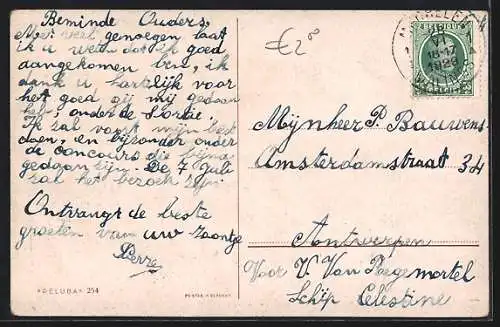 Beminde Ouders,
Met veel genoegen laat
ik u weten dat ik goed
aangekomen ben, ik
dank u, hartelijk voor
het goed gij mij gedaan
hebt, onder de Sortie
Ik zal voort mijn best
doen, en bijzonder onder
de concours die
gedaan zijn. De 7 Juli
zal het bezoek zijn.
Ontvangt de beste
groeten van uw zoontje
€2⁰
1926
Mijnheer P. Bauwens
Amsterdamstraat 34
Antwerpen
Voor V. Van Poegemortel
Schip Celestine
"RELUBA" 254